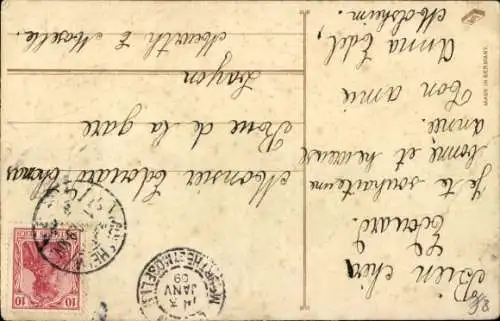 Bien cher
Edouard.
Je te souhaite une
bonne et heureuse
année.
Ton amie
Anna Edel,
Molsheim.
MADE IN GERMANY.
Monsieur Edouard Thomas
Rue de la gare
Longuyon
Meurth & Moselle.
10 10
JANV
09